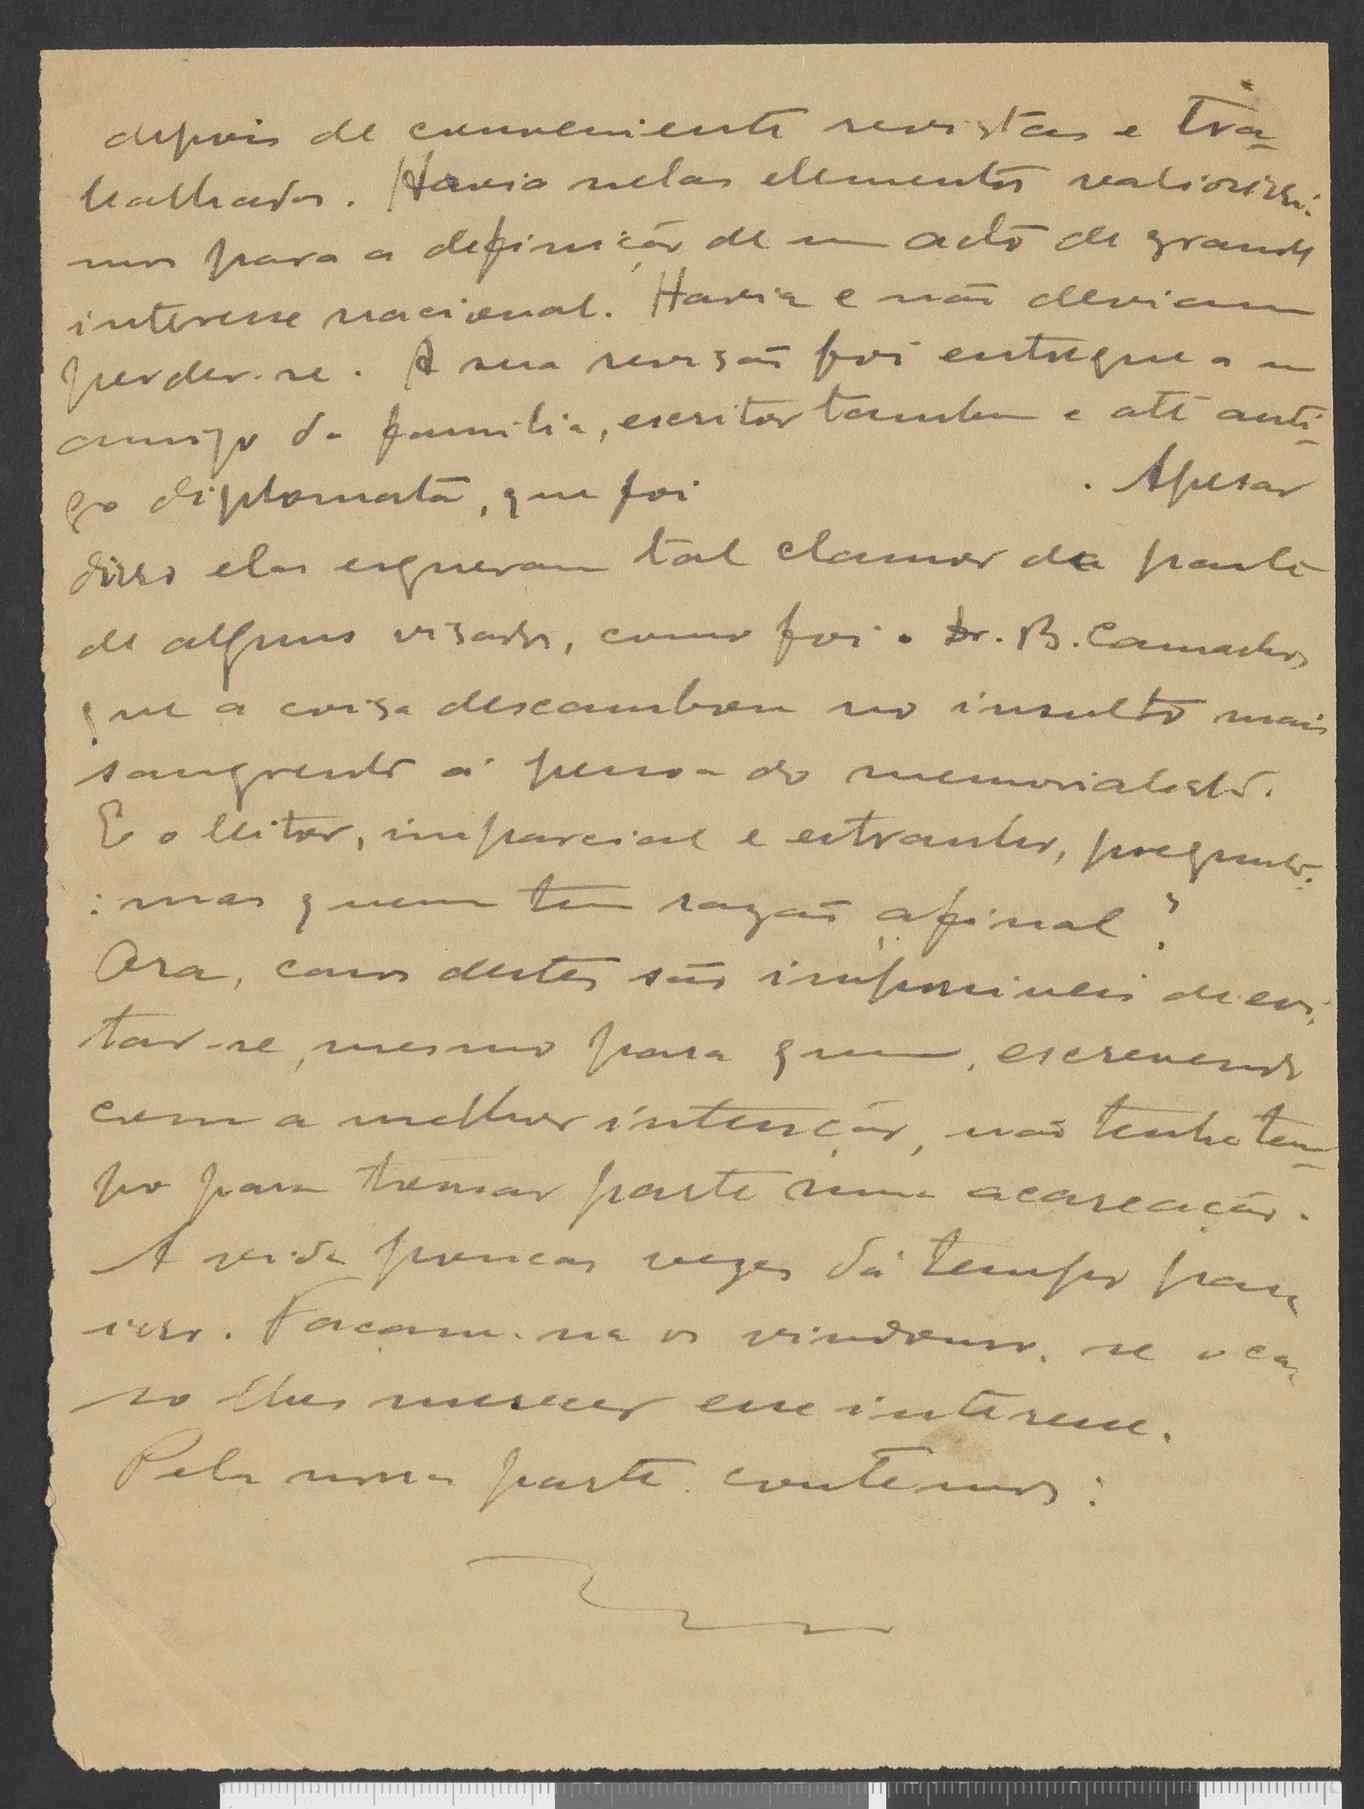 depois de conveniente revistas e tra-
balhadas. Havia nelas elementos valiosissi-
mos para a definição de um acto de grande
interesse nacional. Havia e não deviam
perder-se. A sua revisão foi entregue a um
amigo da familia, escritor tambem e até anti-
go diplomata, que foi . Apesar
disso elas ergueram tal clamor da parte
de alguns visados, como foi o Dr. B. Camacho,
que a coisa descambou no insulto mais
sangrento á pessoa do memorialista.
E o leitor, imparcial e estranho, pregunta:
: mas quem tem razão afinal?
Ora, casos destes são impossiveis de evi-
tar-se, mesmo para quem, escrevendo
com a melhor intenção, não tenha tem-
po para tomar parte numa acareação.
A vida poucas vezes dá tempo para
isso. Façam-na os vindouros, se o ca-
so lhes merecer esse interesse.
Pela nossa parte contemos: